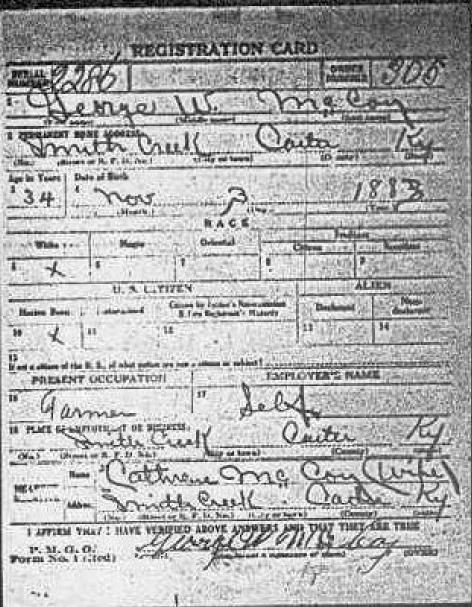 REGISTRATION CARD
SERIAL NUMBER 2286 ORDER NUMBER 305
1 George W. McCoy
(First name) (Middle name) (Last name)
2 PERMANENT HOME ADDRESS:
Smith Creek Carter Ky
(No.) (Street or R. F. D. No.) (City or town) (County) (State)
Age in Years Date of Birth
3 34 4 Nov 3 1883
(Month.) (Day.) (Year.)
RACE
White Negro Oriental Indian
Citizen Noncitizen
5 x 6 7 8 9
U. S. CITIZEN ALIEN
Native Born Naturalized Citizen by Father's Naturalization Before Registrant's Majority Declarant Non-declarant
10 x 11 12 13 14
15
If not a citizen of the U. S., of what nation are you a citizen or subject?
PRESENT OCCUPATION EMPLOYER'S NAME
16 Farmer 17 Self
18 PLACE OF EMPLOYMENT OR BUSINESS:
Smith Creek Carter Ky
(No.) (Street or R. F. D. No.) (City or town) (County) (State)
Name Cathrene McCoy (Wife)
Address Smith Creek Carter Ky
(No.) (County)
I AFFIRM THAT I HAVE VERIFIED ABOVE ANSWERS AND THAT THEY ARE TRUE
P. M. G. O.
Form No. 1 (Red) George W McCoy